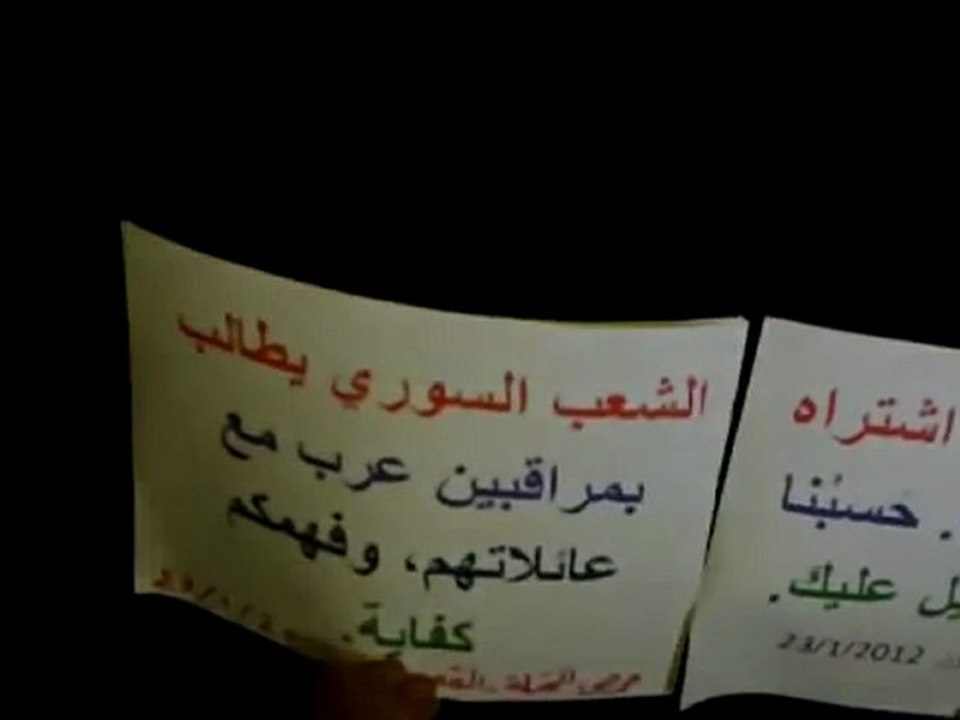 الشعب السوري يطالب
بمراقبين عرب مع
عائلاتهم، وفهمكم
كفاية.
اشتراه
. حسبنا
عليك.
23/1/2012